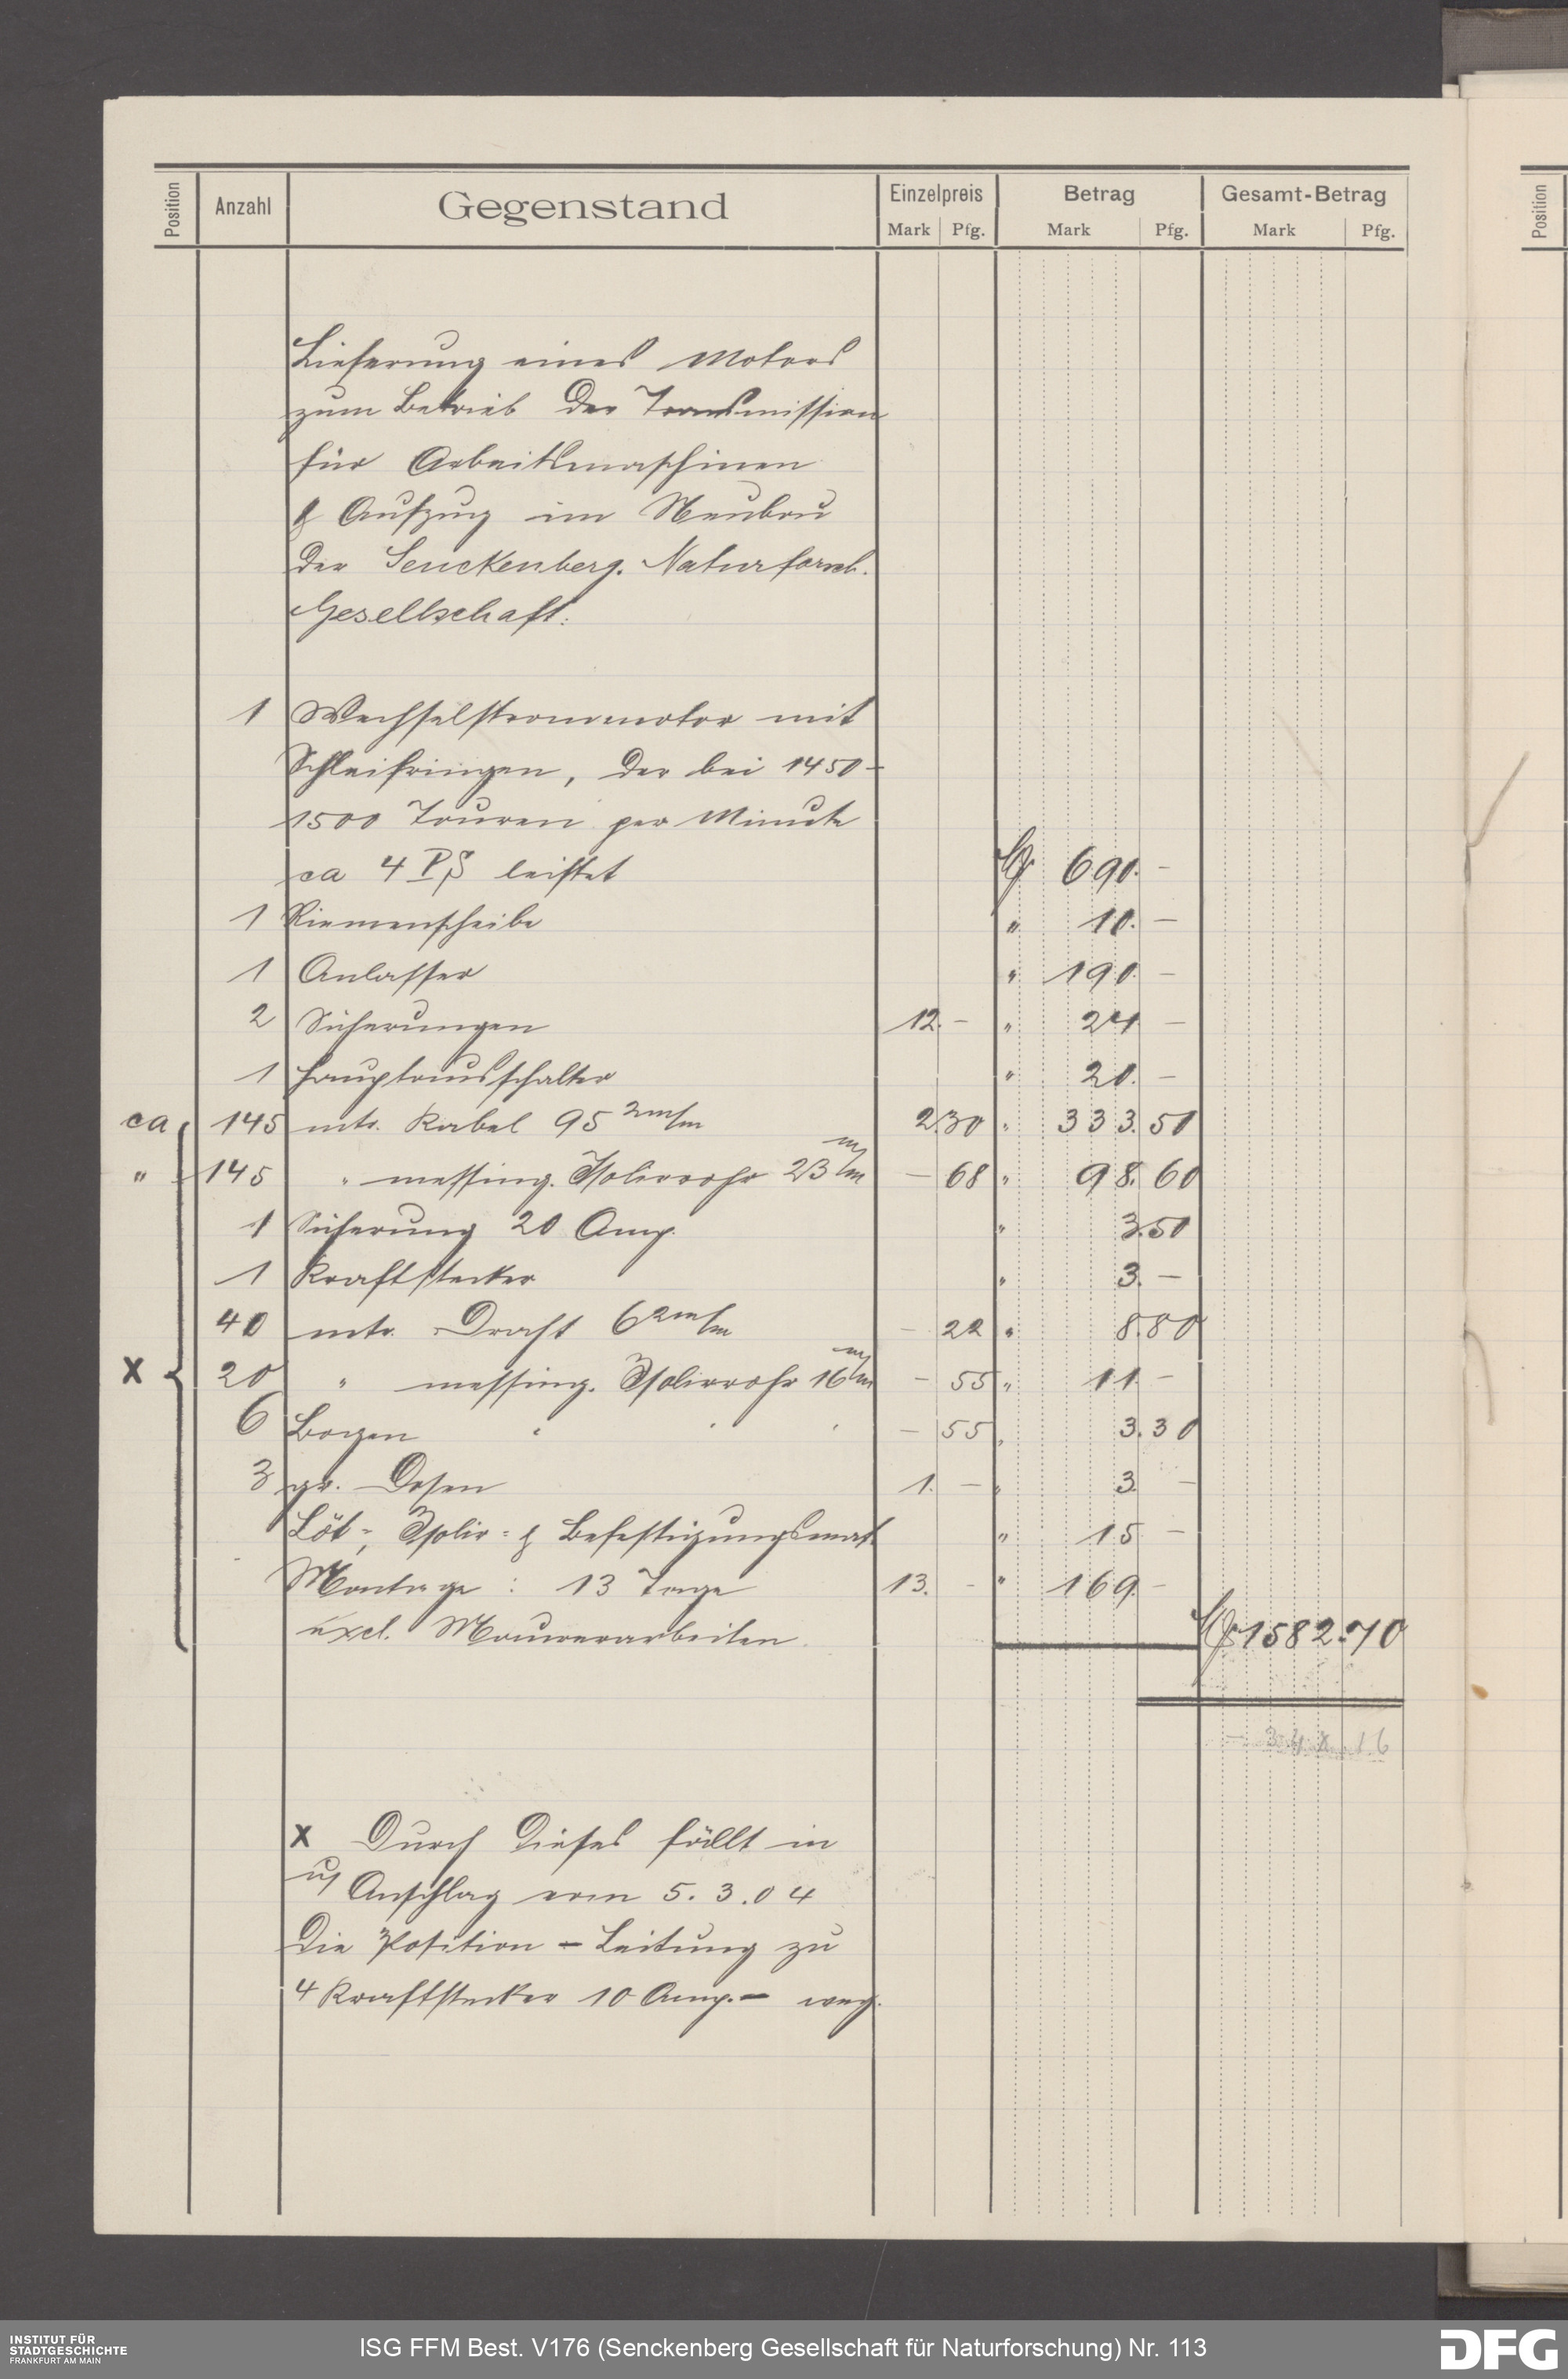 Position Anzahl Gegenstand Einzelpreis Betrag Gesamt-Betrag Position
Mark Pfg. Mark Pfg. Mark Pfg.
Lieferung eines Motors
zum Betrieb der Transmission
für Arbeitsmaschinen
& Aufzug im Neubau
der Senckenberg. Naturforsch.
Gesellschaft.
1 Wechselstrommotor mit
Schleifringen, der bei 1450-
1500 Touren per Minute
ca 4 PS leistet M 690. -
1 Riemenscheibe " 10. -
1 Anlasser " 190. -
2 Sicherungen 12. - " 24 -
1 Hauptausschalter " 20. -
ca 145 mtr. Kabel 95 2m/m 2.30 " 333.50
" 145 " messing. Isolirrohr 23 m/m - 68 " 98.60
1 Sicherung 20 Amp. " 3.50
1 Kraftstecker " 3. -
40 mtr. Draht 6 2m/m - 22 " 8.80
x 20 " messing. Isolirrohr 16 m/m - 55 " 11 -
6 Bogen " " " - 55 " 3.30
3 gr. Dosen 1. - " 3 -
Löt-, Isolir- & Befestigungsmat. " 15 -
Montage : 13 Tage 13. - " 169. -
excl. Maurerarbeiten. M 1582.70
x Durch dieses fällt in
u/ Anschlag vom 5.3.04
die Position - Leitung zu
4 Kraftstecker 10 Amp. - weg.
INSTITUT FÜR
STADTGESCHICHTE
FRANKFURT AM MAIN
ISG FFM Best. V176 (Senckenberg Gesellschaft für Naturforschung) Nr. 113
DFG